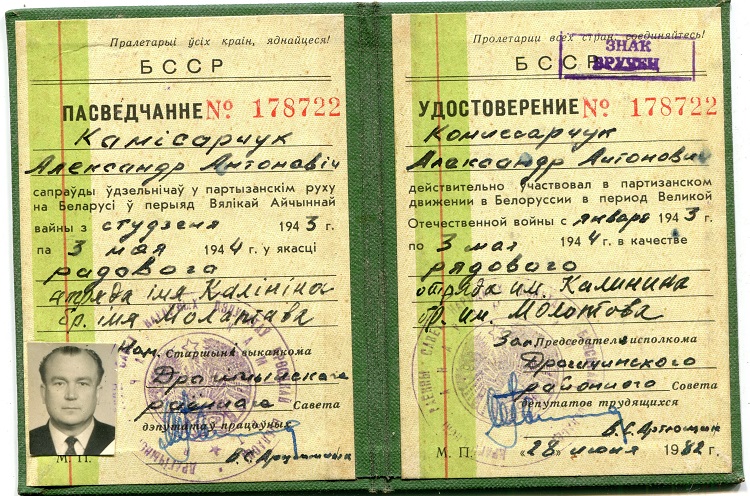 Пралетарыі ўсіх краін, яднайцеся!
БССР
ПАСВЕДЧАННЕ № 178722
Камісарчук
Александр Антонавіч
сапраўды ўдзельнічаў у партызанскім руху
на Беларусі ў перыяд Вялікай Айчыннай
вайны з студзеня 1943 г.
па 3 мая 1944 г. у якасці
радавога
атрада імя Калініна
бр. імя Молатава
Нам. Старшыні выканкома
Драгічынскага
раённага Савета
дэпутатаў працоўных
В.С. Арцюшына
М. П.
Пролетарии всех стран, соединяйтесь!
БССР
ЗНАК
ВРУЧЕН
УДОСТОВЕРЕНИЕ № 178722
Комиссарчук
Александр Антонович
действительно участвовал в партизанском
движении в Белоруссии в период Великой
Отечественной войны с января 1943 г.
по 3 мая 1944 г. в качестве
рядового
отряда им. Калинина
бр. им. Молотова
Зам. Председателя исполкома
Дрогичинского
районного Совета
депутатов трудящихся
В.С. Артюшин
М. П. «28» июня 1982 г.